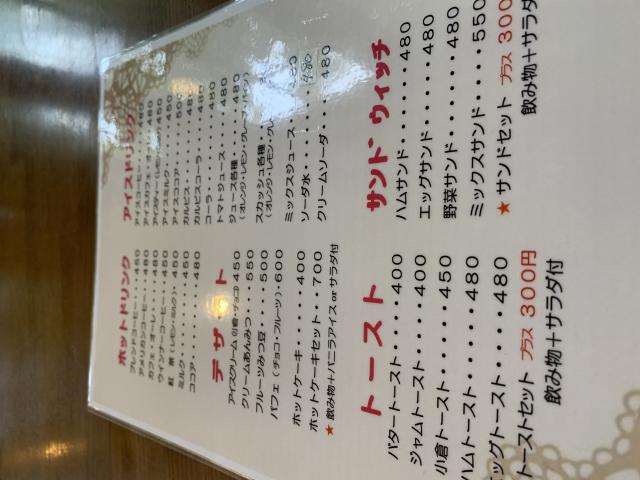 ホットドリンク
ブレンドコーヒー・・・450
アメリカンコーヒー・・480
カフェ・オーレ・・・・480
ウインナーコーヒー・・480
紅 茶(レモン・ミルク)・450
ミルク・・・・・・・450
ココア・・・・・・・480
アイスドリンク
アイスコーヒー・・・480
アイスカフェ・オーレ・480
アイスティー(レモン・ミルク)450
アイスミルク・・・・450
アイスココア・・・・500
カルピス・・・・・・480
カルピスコーラ・・・480
コーラ・・・・・・・480
トマトジュース・・・480
ジュース各種・・・・480
(オレンジ・レモン・グレープ・パイン)
スカッシュ各種・・・・480
(オレンジ・レモン・グレ
ミックスジュース・・・480
ソーダ水・・・・・・480
クリームソーダ・・・・480
デザート
アイスクリーム(小倉・チョコ)450
クリームあんみつ・・・550
フルーツみつ豆・・・・500
パフェ(チョコ・フルーツ)・600
ホットケーキ・・・・・400
ホットケーキセット・・700
★飲み物+バニラアイス or サラダ付
トースト
バタートースト・・・・400
ジャムトースト・・・・400
小倉トースト・・・・・450
ハムトースト・・・・・480
エッグトースト・・・・480
トーストセット プラス 300円
飲み物+サラダ付
サンドウィッチ
ハムサンド・・・・・480
エッグサンド・・・・480
野菜サンド・・・・・480
ミックスサンド・・・550
★サンドセット プラス 300
飲み物+サラダ